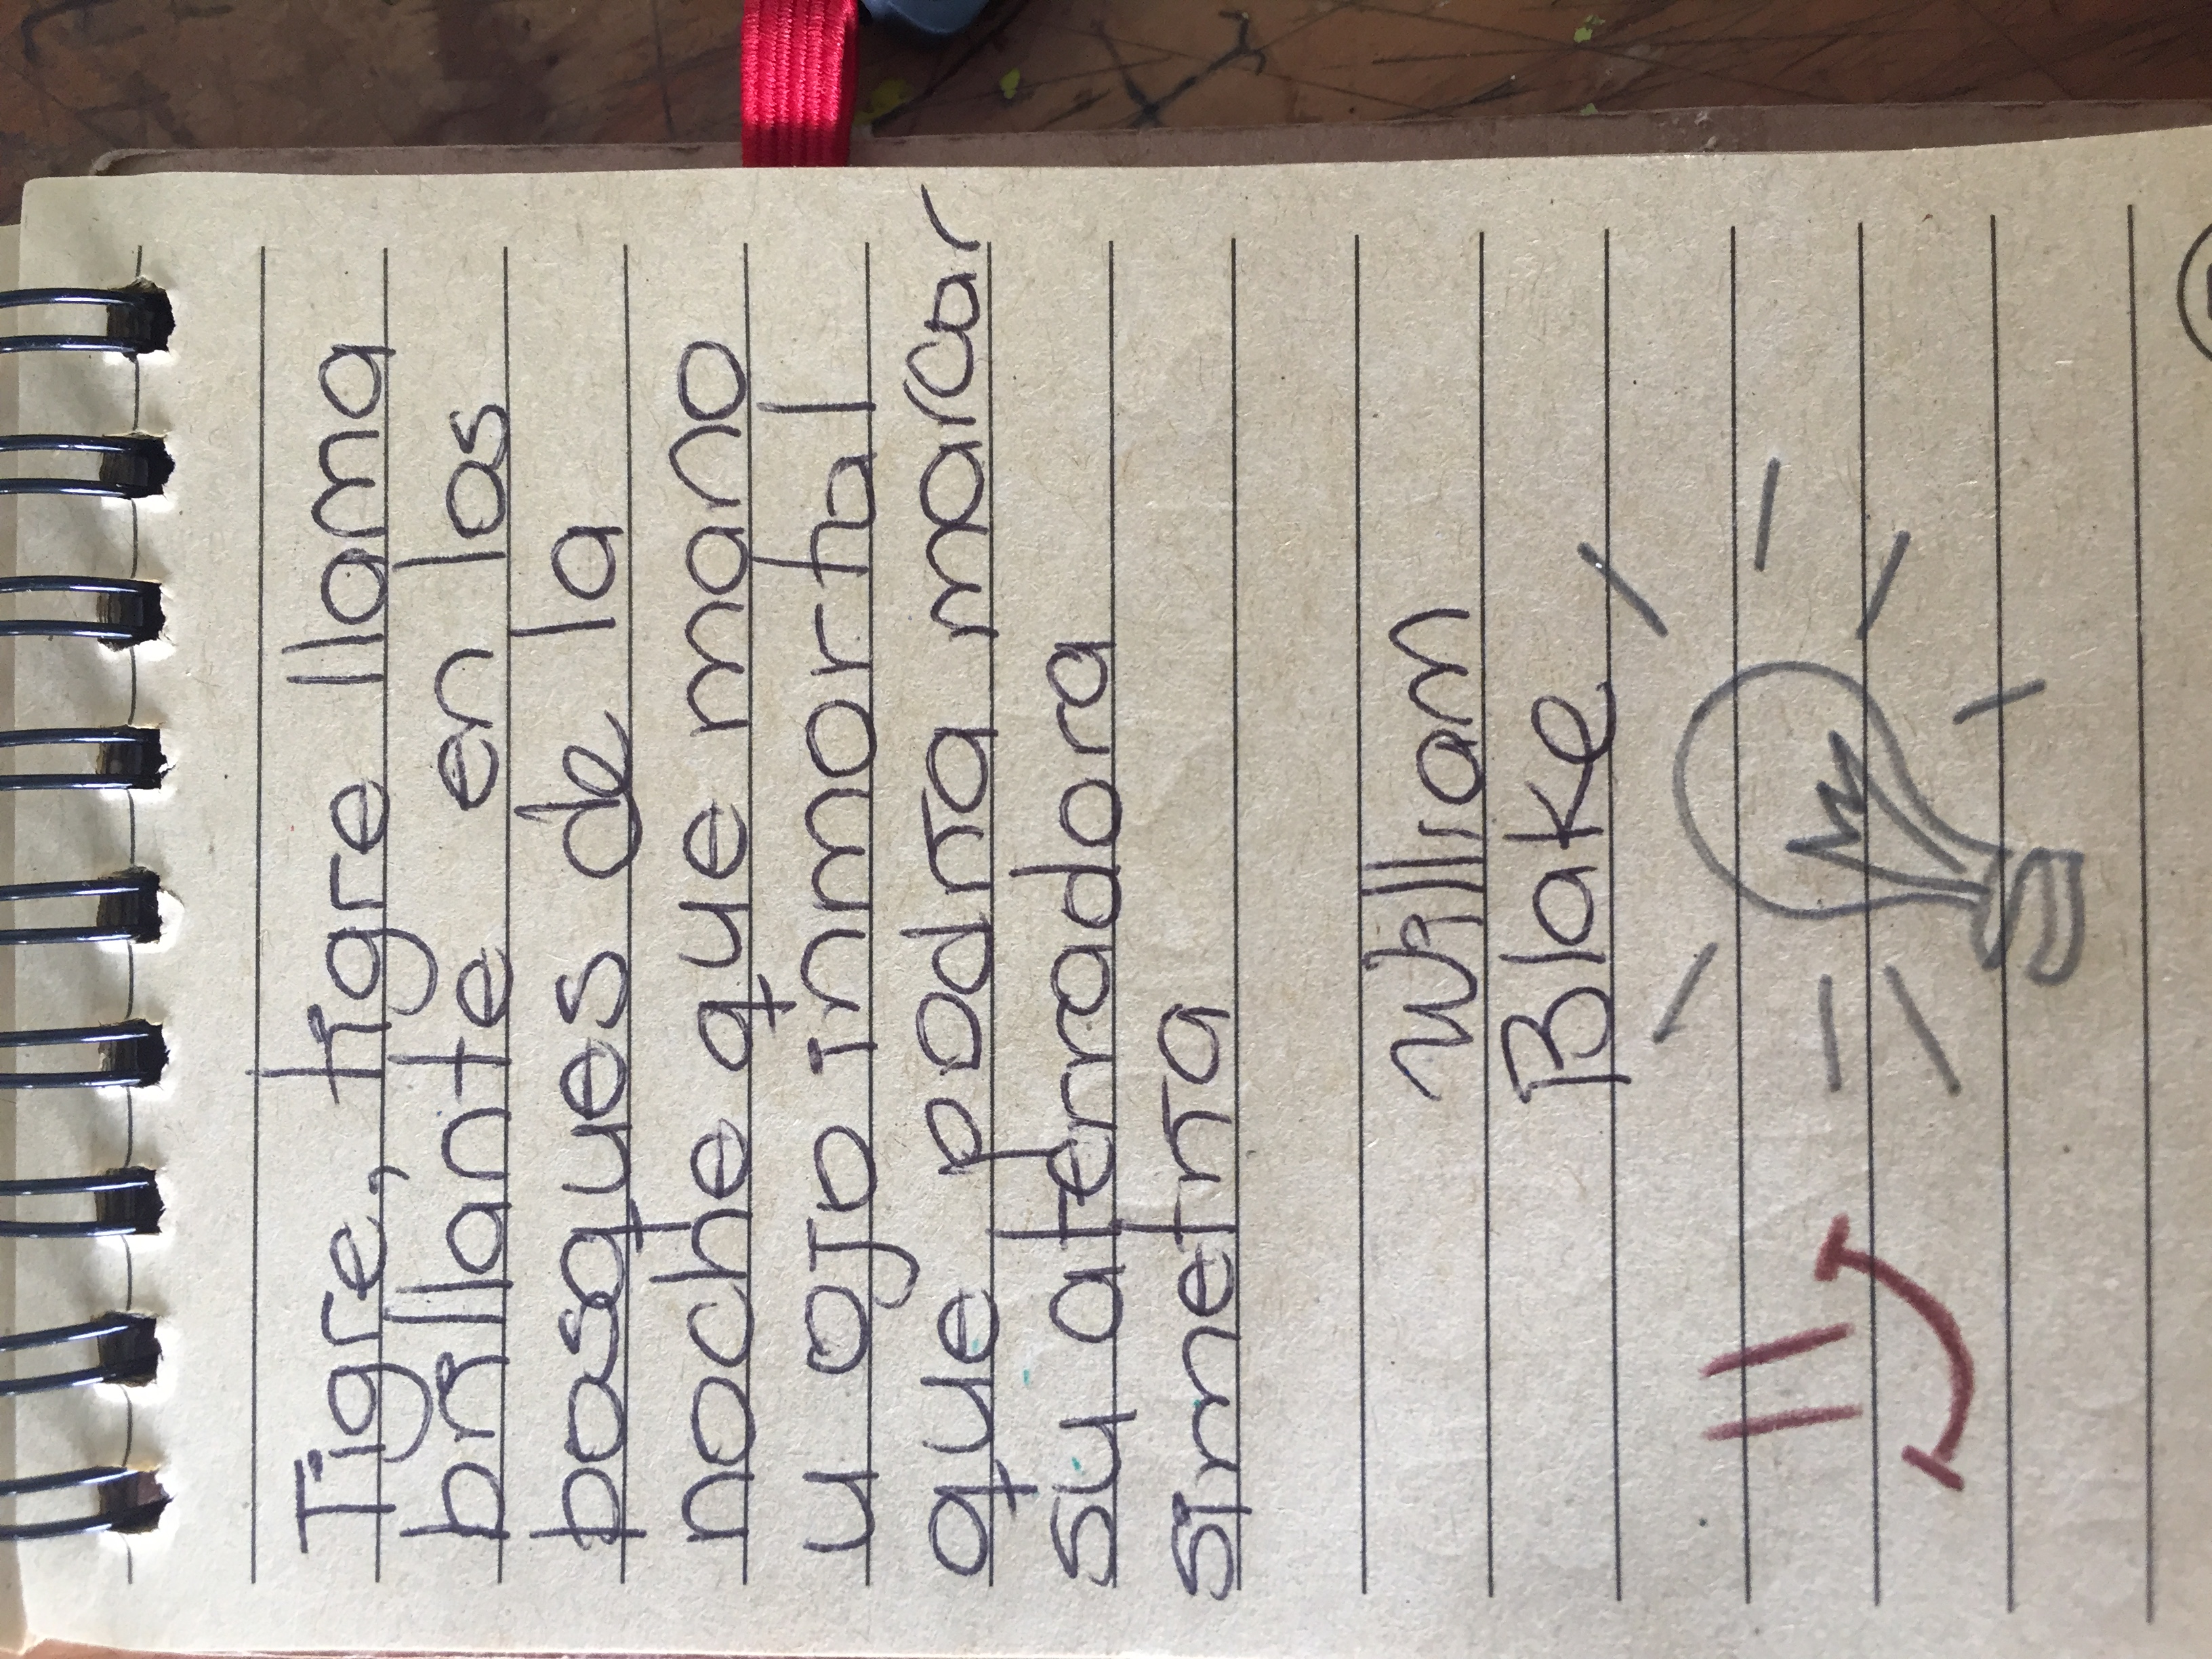 Tigre, tigre llama
brillante en los
bosques de la
noche que mano
u ojo inmortal
que podría marcar
su aterradora
simetría
William
Blake